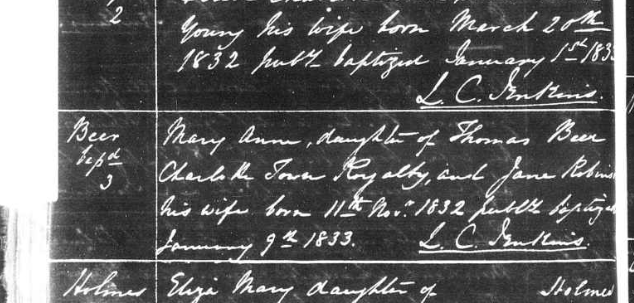 2
Young his wife born March 20th
1832 publ'y baptized January 1st 183
L. C. Jenkins.
Beer Mary Anne, daughter of Thomas Beer
Bapd Charlotte Town Royalty, and Jane Robins
3 his wife born 11th Nov.r 1832 publ'y baptize
January 9th 1833. L. C. Jenkins.
Holmes Eliza Mary daughter of Holmes